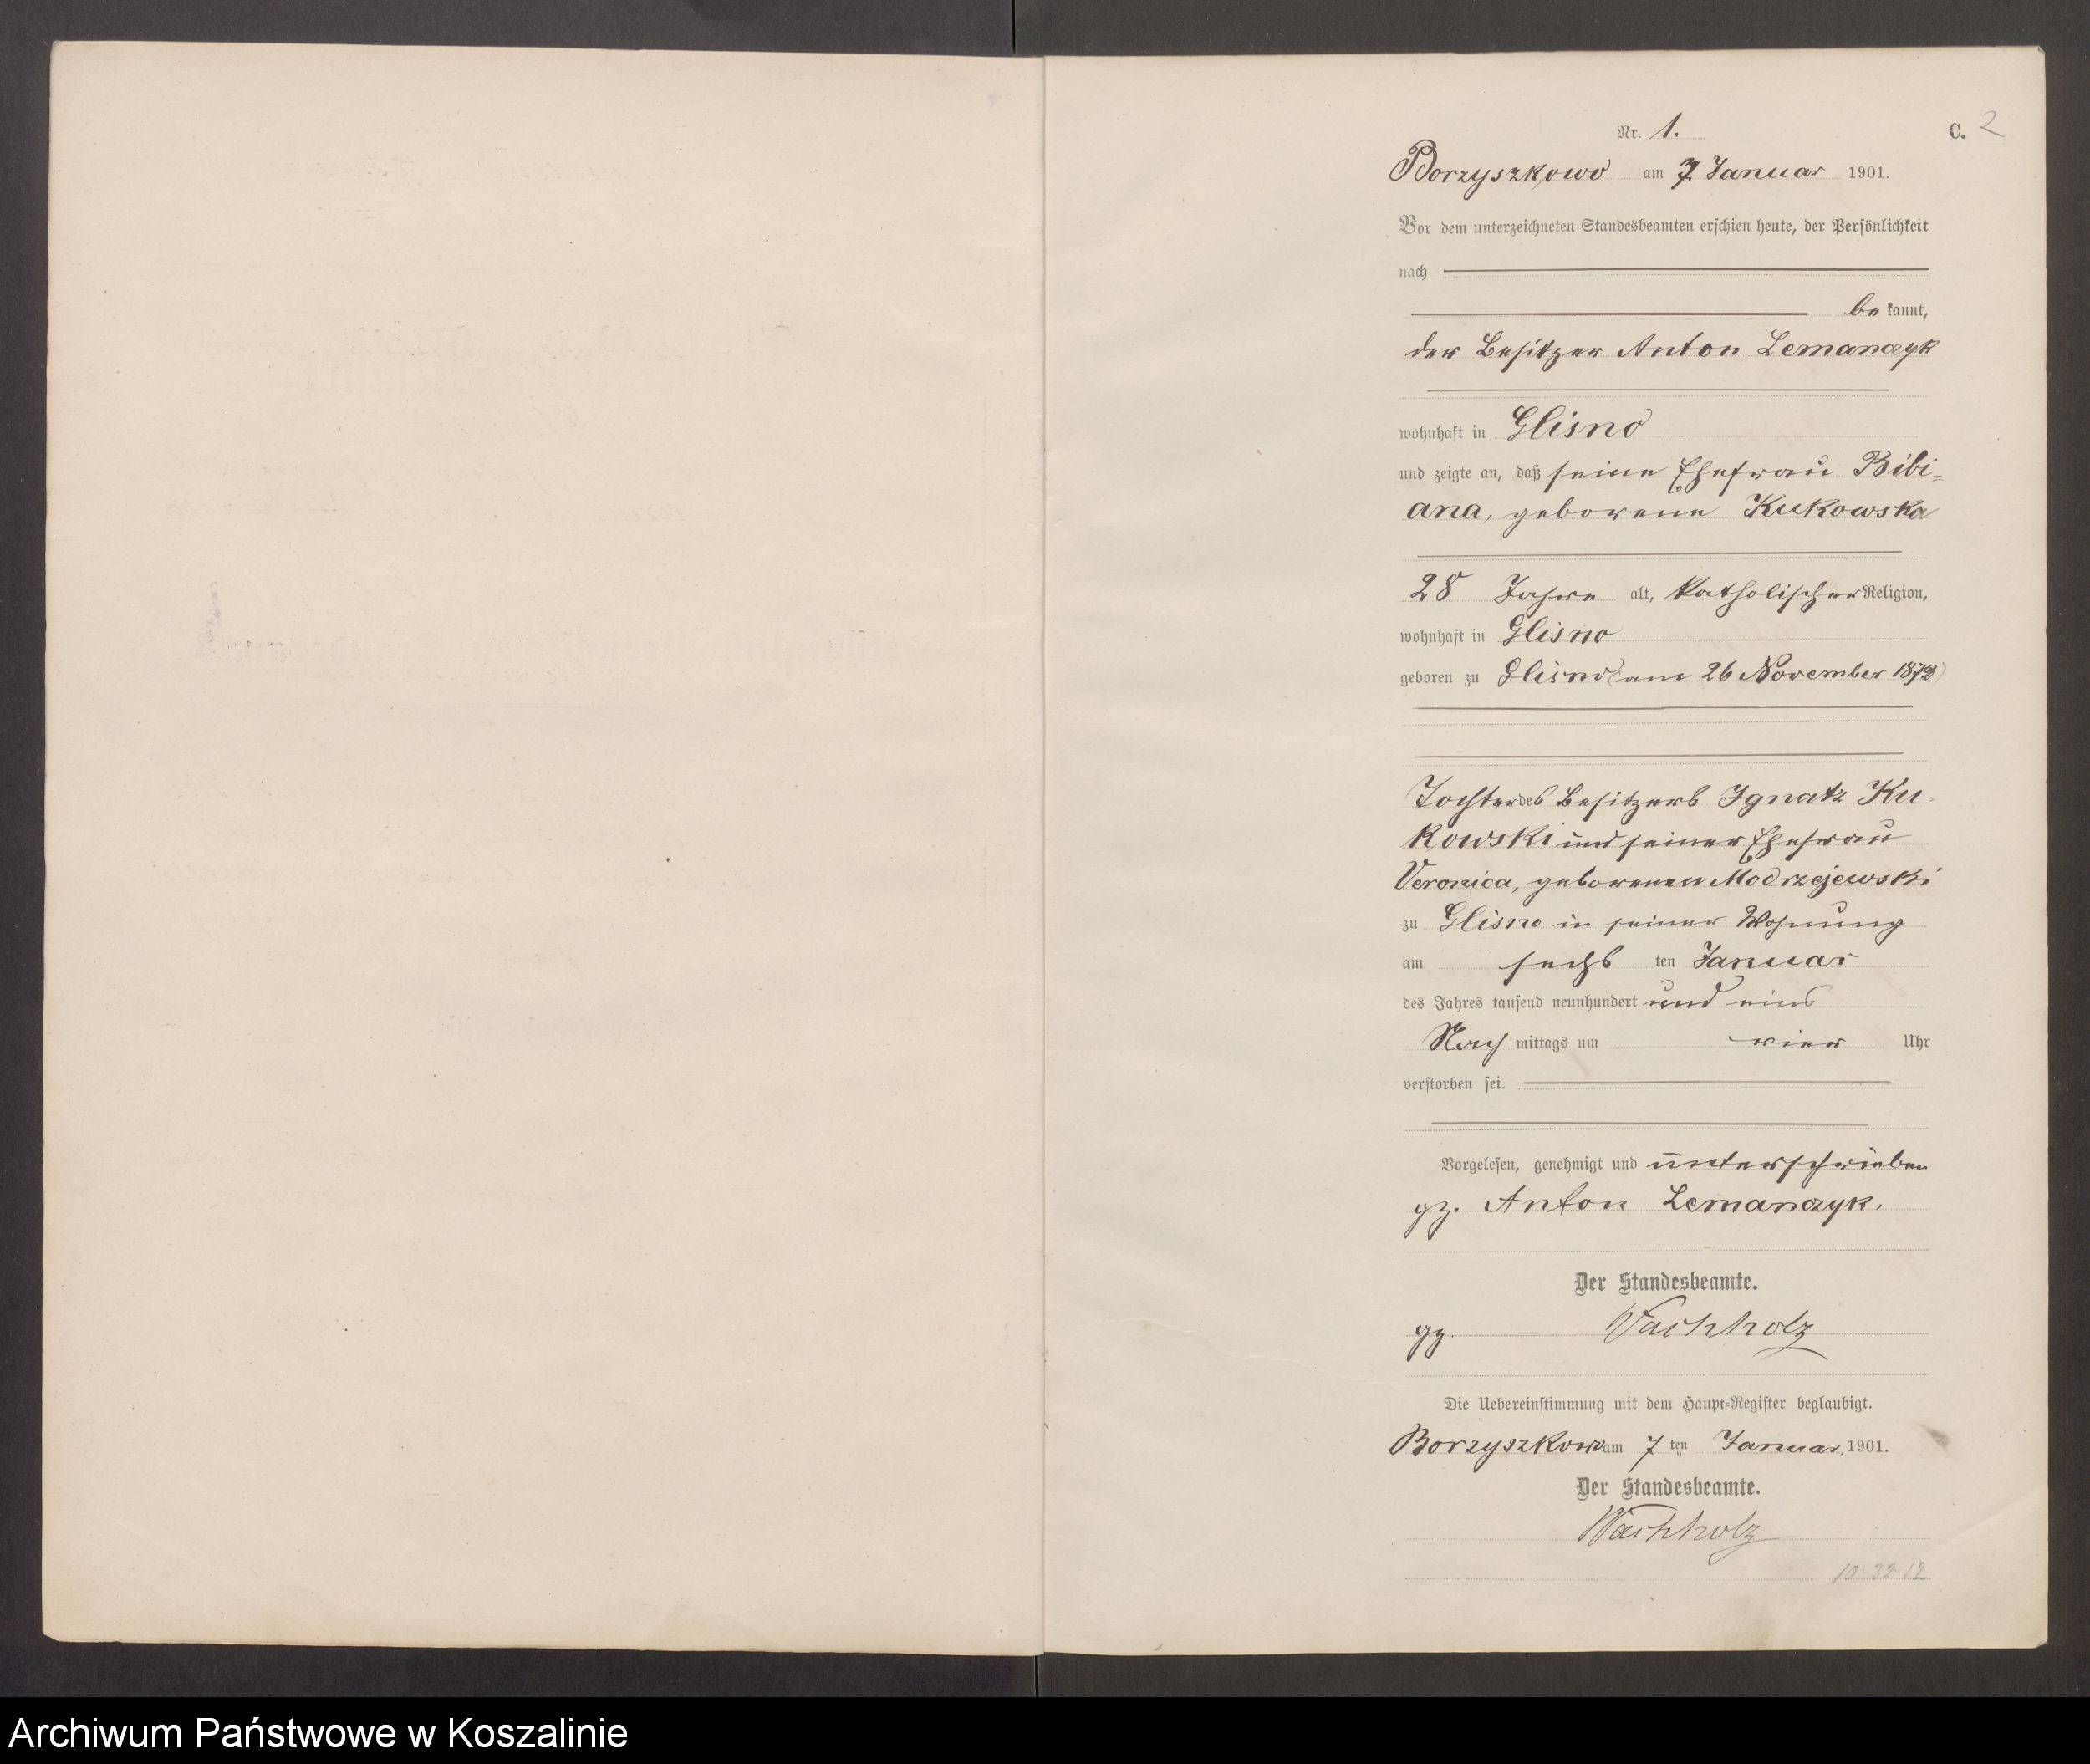 Nr. 1.
C. 2
Borzyszkowo am 7 Januar 1901.
Vor dem unterzeichneten Standesbeamten erschien heute, der Persönlichkeit
nach
be kannt,
der Besitzer Anton Lemanczyk
wohnhaft in Glisno
und zeigte an, daß seine Ehefrau Bibi=
ana, geborene Kukowska
28 Jahre alt, katholischer Religion,
wohnhaft in Glisno
geboren zu Glisno (am 26 November 1872)
Tochter des Besitzers Ignatz Ku-
kowski und seiner Ehefrau
Veronica, geborenen Modrzejewski
zu Glisno in seiner Wohnung
am sechs ten Januar
des Jahres tausend neunhundert und eins
Nach mittags um vier Uhr
verstorben sei.
Vorgelesen, genehmigt und unterschrieben
gz. Anton Lemanczyk.
Der Standesbeamte.
gz. Wachholz
Die Uebereinstimmung mit dem Haupt-Register beglaubigt.
Borzyszkowo am 7 ten Januar. 1901.
Der Standesbeamte.
Wachholz
10-32-12
Archiwum Państwowe w Koszalinie